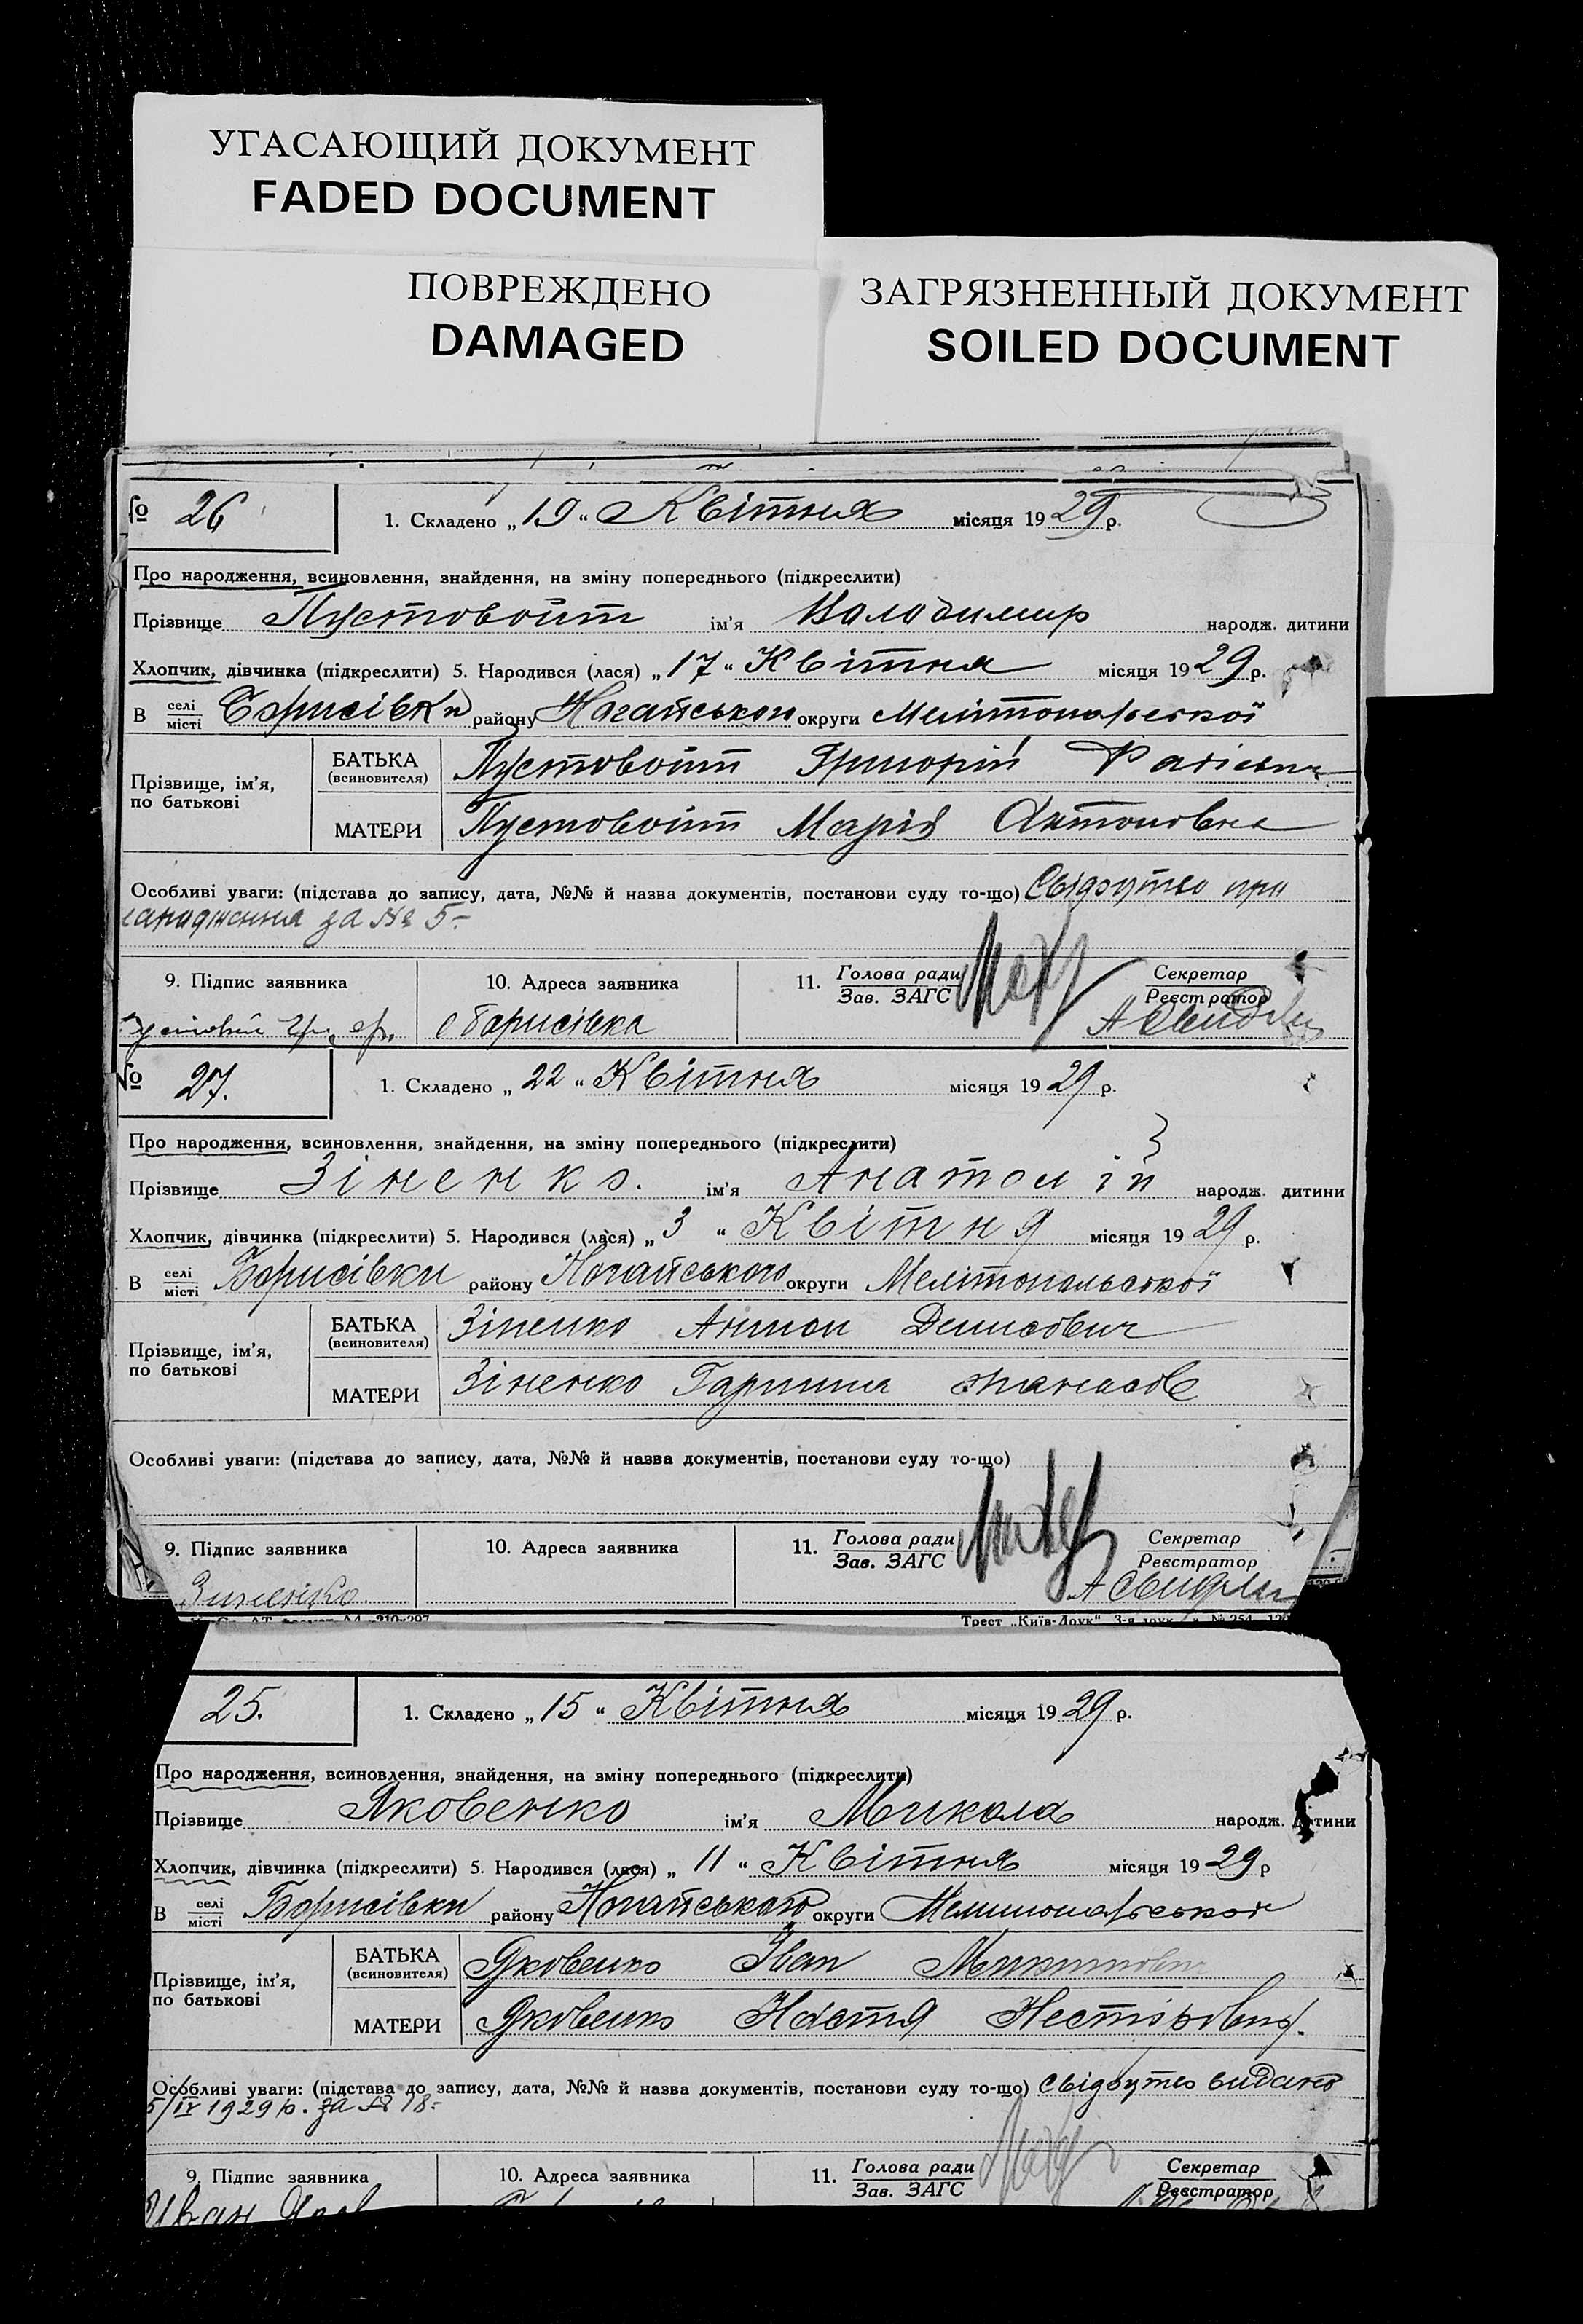 УГАСАЮЩИЙ ДОКУМЕНТ
FADED DOCUMENT
ПОВРЕЖДЕНО
DAMAGED
ЗАГРЯЗНЕННЫЙ ДОКУМЕНТ
SOILED DOCUMENT
№ 26 1. Складено „19“ Квітня місяця 1929 р.
Про народження, всиновлення, знайдення, на зміну попереднього (підкреслити)
Прізвище Пустовойт ім'я Володимир народж. дитини
Хлопчик, дівчинка (підкреслити) 5. Народився (лася) „17“ Квітня місяця 1929 р.
В селі/місті Борисівки району Ногайського округи
Прізвище, ім'я, по батькові
БАТЬКА (всиновителя) Пустовойт Григорій
МАТЕРИ Пустовойт Марія Антоновна
Особливі уваги: (підстава до запису, дата, №№ й назва документів, постанови суду то-що) Свідоцтво про
народження за № 5-
9. Підпис заявника 10. Адреса заявника 11. Голова ради/Зав. ЗАГС Секретар/Реєстратор
с Борисівка
№ 27. 1. Складено „22“ Квітня місяця 1929 р.
Про народження, всиновлення, знайдення, на зміну попереднього (підкреслити)
Прізвище Зіненко. ім'я Анатолій народж. дитини
Хлопчик, дівчинка (підкреслити) 5. Народився (лася) „3“ Квітня місяця 1929 р.
В селі/місті Борисівки району Ногайського округи Мелітопольської
Прізвище, ім'я, по батькові
БАТЬКА (всиновителя) Зіненко Антон Денисович
МАТЕРИ Зіненко Гарпина
Особливі уваги: (підстава до запису, дата, №№ й назва документів, постанови суду то-що)
9. Підпис заявника 10. Адреса заявника 11. Голова ради/Зав. ЗАГС Секретар/Реєстратор
Зиненко
Трест „Київ-Друк“
25. 1. Складено „15“ Квітня місяця 1929 р.
Про народження, всиновлення, знайдення, на зміну попереднього (підкреслити)
Прізвище Яковенко ім'я Микола народж. дитини
Хлопчик, дівчинка (підкреслити) 5. Народився (лася) „11“ Квітня місяця 1929 р
В селі/місті Борисівки району Ногайського округи
Прізвище, ім'я, по батькові
БАТЬКА (всиновителя) Яковенко Іван
МАТЕРИ Яковенко Настя Несторовна.
Особливі уваги: (підстава до запису, дата, №№ й назва документів, постанови суду то-що) Свідоцтво видано
5/IV 1929 р. за № 18-
9. Підпис заявника 10. Адреса заявника 11. Голова ради/Зав. ЗАГС Секретар/Реєстратор
Иван